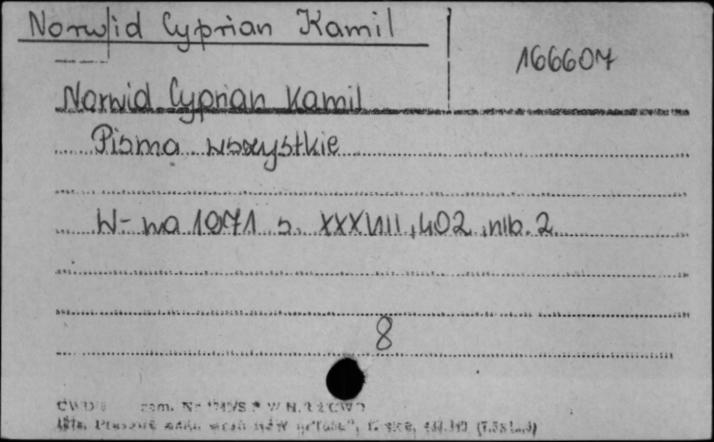 Norwid Cyprian Kamil
166607
Norwid Cyprian Kamil
Pisma wszystkie
W-wa 1971 s. XXXVIII, 402, nlb. 2
8